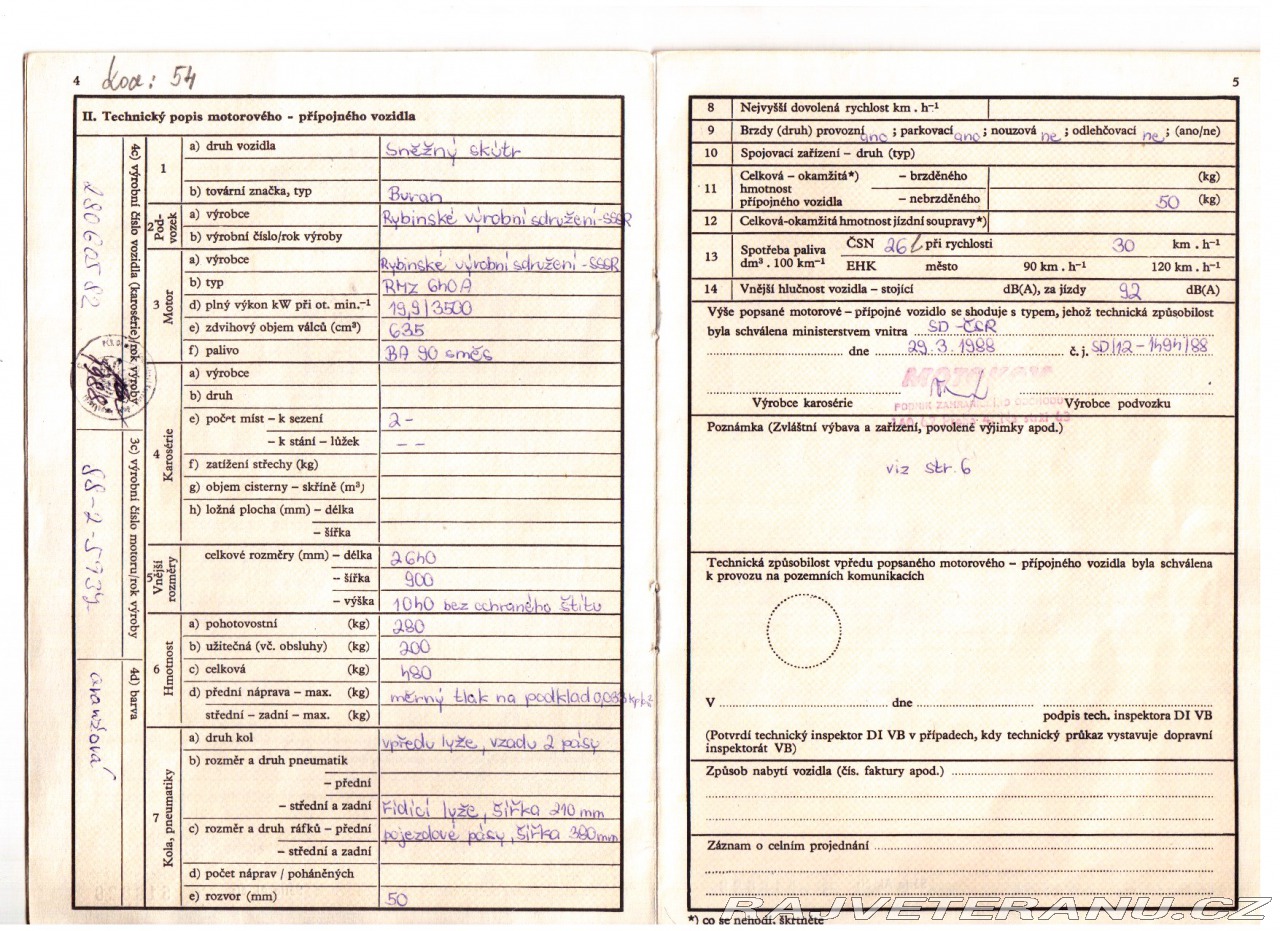 4
54
II. Technický popis motorového – přípojného vozidla
4c) výrobní číslo vozidla (karosérie)/rok výroby
3c) výrobní číslo motoru/rok výroby
4d) barva
oranžová
1
a) druh vozidla Sněžný skútr
b) tovární značka, typ Buran
2 Pod-
vozek
a) výrobce Rybinské výrobní sdružení-SSSR
b) výrobní číslo/rok výroby
3 Motor
a) výrobce Rybinské výrobní sdružení-SSSR
b) typ RMZ 640A
d) plný výkon kW při ot. min.⁻¹ 19,9/3500
e) zdvihový objem válců (cm³) 635
f) palivo BA 90 směs
4 Karosérie
a) výrobce
b) druh
e) počet míst – k sezení 2 -
– k stání – lůžek - -
f) zatížení střechy (kg)
g) objem cisterny – skříně (m³)
h) ložná plocha (mm) – délka
– šířka
5 Vnější
rozměry
celkové rozměry (mm) – délka 2640
– šířka 900
– výška 1040 bez ochraného štítu
6 Hmotnost
a) pohotovostní (kg) 280
b) užitečná (vč. obsluhy) (kg) 200
c) celková (kg) 480
d) přední náprava – max. (kg) měrný tlak na podklad
střední – zadní – max. (kg)
7 Kola, pneumatiky
a) druh kol vpředu lyže, vzadu 2 pásy
b) rozměr a druh pneumatik
– přední
– střední a zadní řídící lyže, šířka 210 mm
c) rozměr a druh ráfků – přední pojezdové pásy, šířka 380 mm
– střední a zadní
d) počet náprav / poháněných
e) rozvor (mm) 50
5
8 Nejvyšší dovolená rychlost km . h⁻¹
9 Brzdy (druh) provozní ano ; parkovací ano ; nouzová ne ; odlehčovací ne ; (ano/ne)
10 Spojovací zařízení – druh (typ)
11 Celková – okamžitá*) – brzděného (kg)
hmotnost
přípojného vozidla – nebrzděného 50 (kg)
12 Celková-okamžitá hmotnost jízdní soupravy*)
13 Spotřeba paliva ČSN 26 l při rychlosti 30 km . h⁻¹
dm³ . 100 km⁻¹ EHK město 90 km . h⁻¹ 120 km . h⁻¹
14 Vnější hlučnost vozidla – stojící dB(A), za jízdy 92 dB(A)
Výše popsané motorové – přípojné vozidlo se shoduje s typem, jehož technická způsobilost
byla schválena ministerstvem vnitra SD-ČSR
dne 29.3.1988 č. j. SD/12-1494/88
MOTOKOV
PODNIK ZAHRANIČNÍHO OBCHODU
Výrobce karosérie Výrobce podvozku
Poznámka (Zvláštní výbava a zařízení, povolené výjimky apod.)
viz str. 6
Technická způsobilost vpředu popsaného motorového – přípojného vozidla byla schválena
k provozu na pozemních komunikacích
V dne
podpis tech. inspektora DI VB
(Potvrdí technický inspektor DI VB v případech, kdy technický průkaz vystavuje dopravní
inspektorát VB)
Způsob nabytí vozidla (čís. faktury apod.)
Záznam o celním projednání
*) co se nehodí, škrtněte
RAJVETERANU.CZ